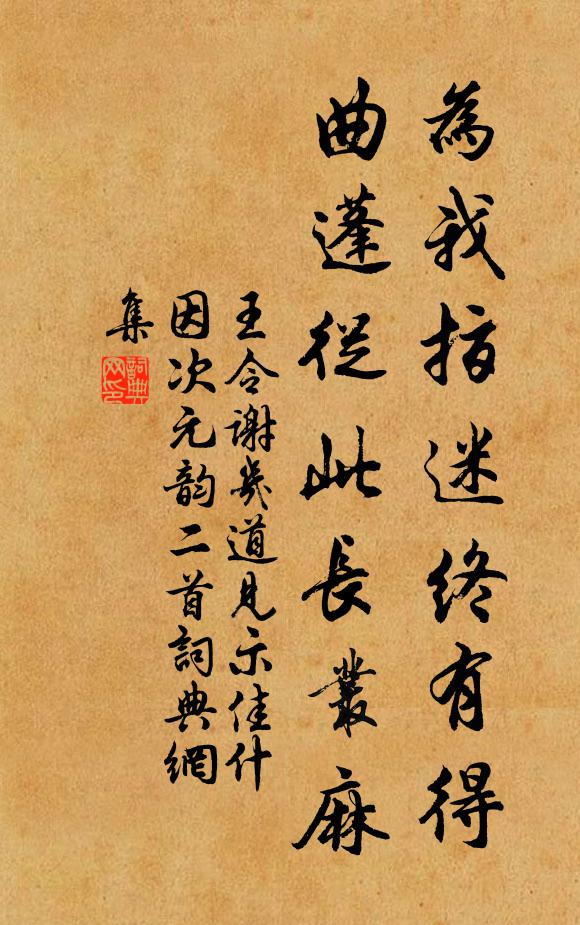 為我指迷終有得
曲蓬從此長叢麻
王令謝幾道見示佳什
因次元韵二首詞典網
集
詞典
网印